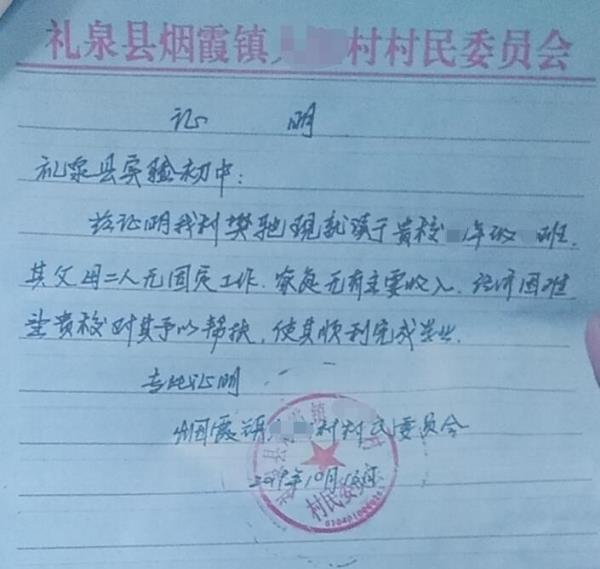 礼泉县烟霞镇 村村民委员会
证 明
礼泉县实验初中:
兹证明我村樊驰现就读于贵校 年级 班.
其父母二人无固定工作.家庭无有主要收入.经济困难
望贵校对其予以帮扶,使其顺利完成学业.
专此证明
烟霞镇 村村民委员会
2019年10月 日
村民委员会